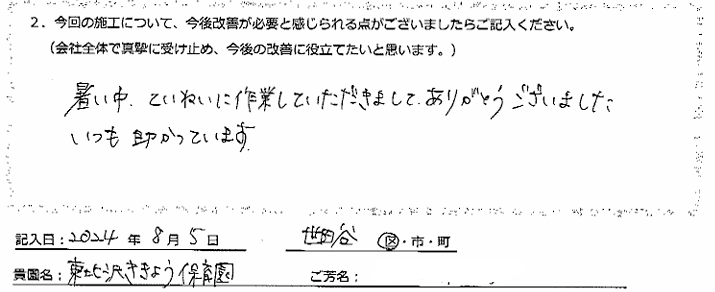 2．今回の施工について、今後改善が必要と感じられる点がございましたらご記入ください。
（会社全体で真摯に受け止め、今後の改善に役立てたいと思います。）
暑い中、ていねいに作業していただきまして、ありがとうございました
いつも助かっています
記入日：2024年 8月 5日 世田谷 区・市・町
貴園名：東北沢ききょう保育園 ご芳名：